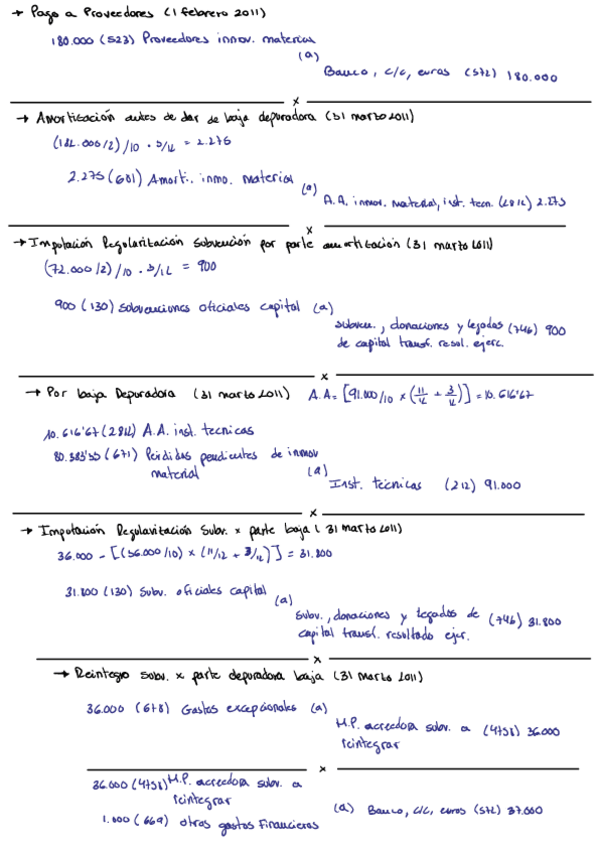 → Pago a Proveedores (1 febrero 2011)
180.000 (523) Proveedores inmov. material
(a)
Banco, c/c, euros (572) 180.000
x
→ Amortización antes de dar de baja depuradora (31 marzo 2011)
(182.000/2)/10 · 3/12 = 2.275
2.275 (681) Amorti. inmo. material
(a)
A.A. inmov. material, inst. tecn. (2812) 2.275
x
→ Imputación Regularización Subvención por parte amortización (31 marzo 2011)
(72.000/2)/10 · 3/12 = 900
900 (130) subvenciones oficiales capital (a)
subven., donaciones y legados (746) 900
de capital transf. resul. ejerc.
x
→ Por baja Depuradora (31 marzo 2011) A.A = [91.000/10 x (11/12 + 3/12)] = 10.616'67
10.616'67 (2812) A.A. inst. tecnicas
80.383'33 (671) Pérdidas pendientes de inmov
material
(a)
Inst. tecnicas (212) 91.000
x
→ Imputación Regularización Subv. x parte baja (31 marzo 2011)
36.000 - [(36.000/10) x (11/12 + 3/12)] = 31.800
31.800 (130) Subv. oficiales capital
(a)
Subv., donaciones y legados de (746) 31.800
capital transf. resultado ejer.
x
→ Reintegro subv. x parte depuradora baja (31 marzo 2011)
36.000 (678) Gastos excepcionales (a)
H.P. acreedora subv. a (4758) 36.000
reintegrar
x
36.000 (4758) H.P. acreedora subv. a
reintegrar
1.000 (669) otros gastos financieros
(a) Banco, c/c, euros (572) 37.000